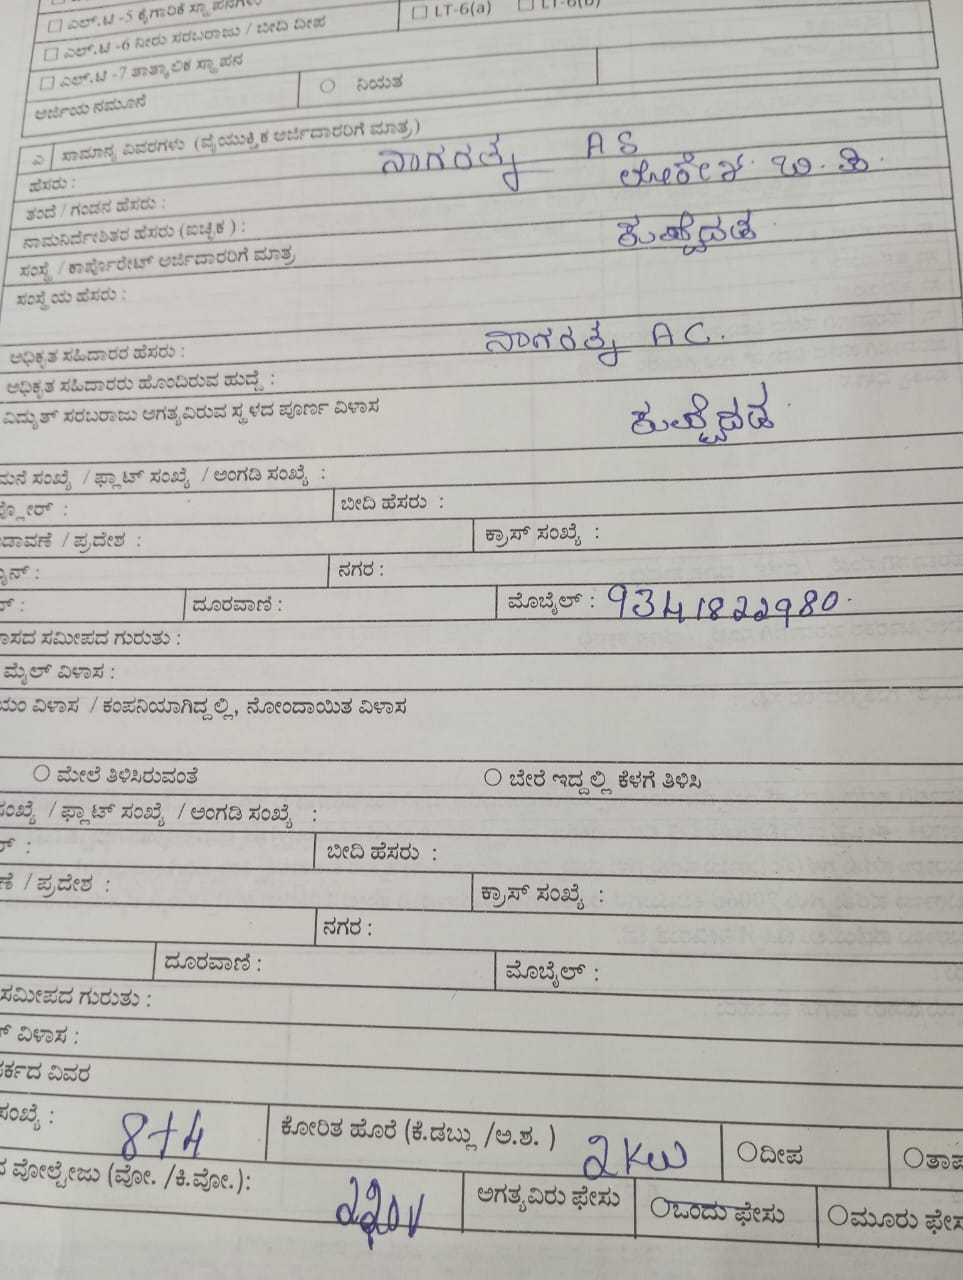 □ ಎಲ್.ಟಿ -5 ಕೈಗಾರಿಕೆ ಸ್ಥಾಪನೆಗಳು
□ LT-6(a) □ LT-6(b)
□ ಎಲ್.ಟಿ -6 ನೀರು ಸರಬರಾಜು / ಬೀದಿ ದೀಪ
□ ಎಲ್.ಟಿ -7 ತಾತ್ಕಾಲಿಕ ಸ್ಥಾಪನ
ಅರ್ಜಿಯ ನಮೂನೆ ○ ನಿಯತ
ಎ ಸಾಮಾನ್ಯ ವಿವರಗಳು (ವೈಯುಕ್ತಿಕ ಅರ್ಜಿದಾರರಿಗೆ ಮಾತ್ರ)
ಹೆಸರು : ನಾಗರತ್ನ AS
ತಂದೆ / ಗಂಡನ ಹೆಸರು : ಲೋಕೇಶ ಬಿ. ವಿ.
ನಾಮನಿರ್ದೇಶಿತರ ಹೆಸರು (ಐಚ್ಛಿಕ) :
ಸಂಸ್ಥೆ / ಕಾರ್ಪೊರೇಟ್ ಅರ್ಜಿದಾರರಿಗೆ ಮಾತ್ರ
ಸಂಸ್ಥೆಯ ಹೆಸರು :
ಅಧಿಕೃತ ಸಹಿದಾರರ ಹೆಸರು : ನಾಗರತ್ನ AC.
ಅಧಿಕೃತ ಸಹಿದಾರರು ಹೊಂದಿರುವ ಹುದ್ದೆ :
ವಿದ್ಯುತ್ ಸರಬರಾಜು ಅಗತ್ಯವಿರುವ ಸ್ಥಳದ ಪೂರ್ಣ ವಿಳಾಸ
ಮನೆ ಸಂಖ್ಯೆ / ಫ್ಲಾಟ್ ಸಂಖ್ಯೆ / ಅಂಗಡಿ ಸಂಖ್ಯೆ :
ಫ್ಲೋರ್ : ಬೀದಿ ಹೆಸರು :
ಡಾವಣೆ / ಪ್ರದೇಶ : ಕ್ರಾಸ್ ಸಂಖ್ಯೆ :
ನಗರ :
ದೂರವಾಣಿ : ಮೊಬೈಲ್ : 9341822980.
ಾಸದ ಸಮೀಪದ ಗುರುತು :
ಮೈಲ್ ವಿಳಾಸ :
ಯಂ ವಿಳಾಸ / ಕಂಪನಿಯಾಗಿದ್ದಲ್ಲಿ, ನೋಂದಾಯಿತ ವಿಳಾಸ
○ ಮೇಲೆ ತಿಳಿಸಿರುವಂತೆ ○ ಬೇರೆ ಇದ್ದಲ್ಲಿ ಕೆಳಗೆ ತಿಳಿಸಿ
ಸಂಖ್ಯೆ / ಫ್ಲಾಟ್ ಸಂಖ್ಯೆ / ಅಂಗಡಿ ಸಂಖ್ಯೆ :
ರ್ : ಬೀದಿ ಹೆಸರು :
ಣೆ / ಪ್ರದೇಶ : ಕ್ರಾಸ್ ಸಂಖ್ಯೆ :
ನಗರ :
ದೂರವಾಣಿ : ಮೊಬೈಲ್ :
ಸಮೀಪದ ಗುರುತು :
ಲ್ ವಿಳಾಸ :
ರ್ಕದ ವಿವರ
ಸಂಖ್ಯೆ : 8+4 ಕೋರಿತ ಹೊರೆ (ಕೆ.ಡಬ್ಲು /ಅ.ಶ. ) 2KW ○ದೀಪ ○ತಾಪ
ವೋಲ್ಟೇಜು (ವೋ. /ಕಿ.ವೋ.): 220V ಅಗತ್ಯವಿರು ಫೇಸು ○ಒಂದು ಫೇಸು ○ಮೂರು ಫೇಸ